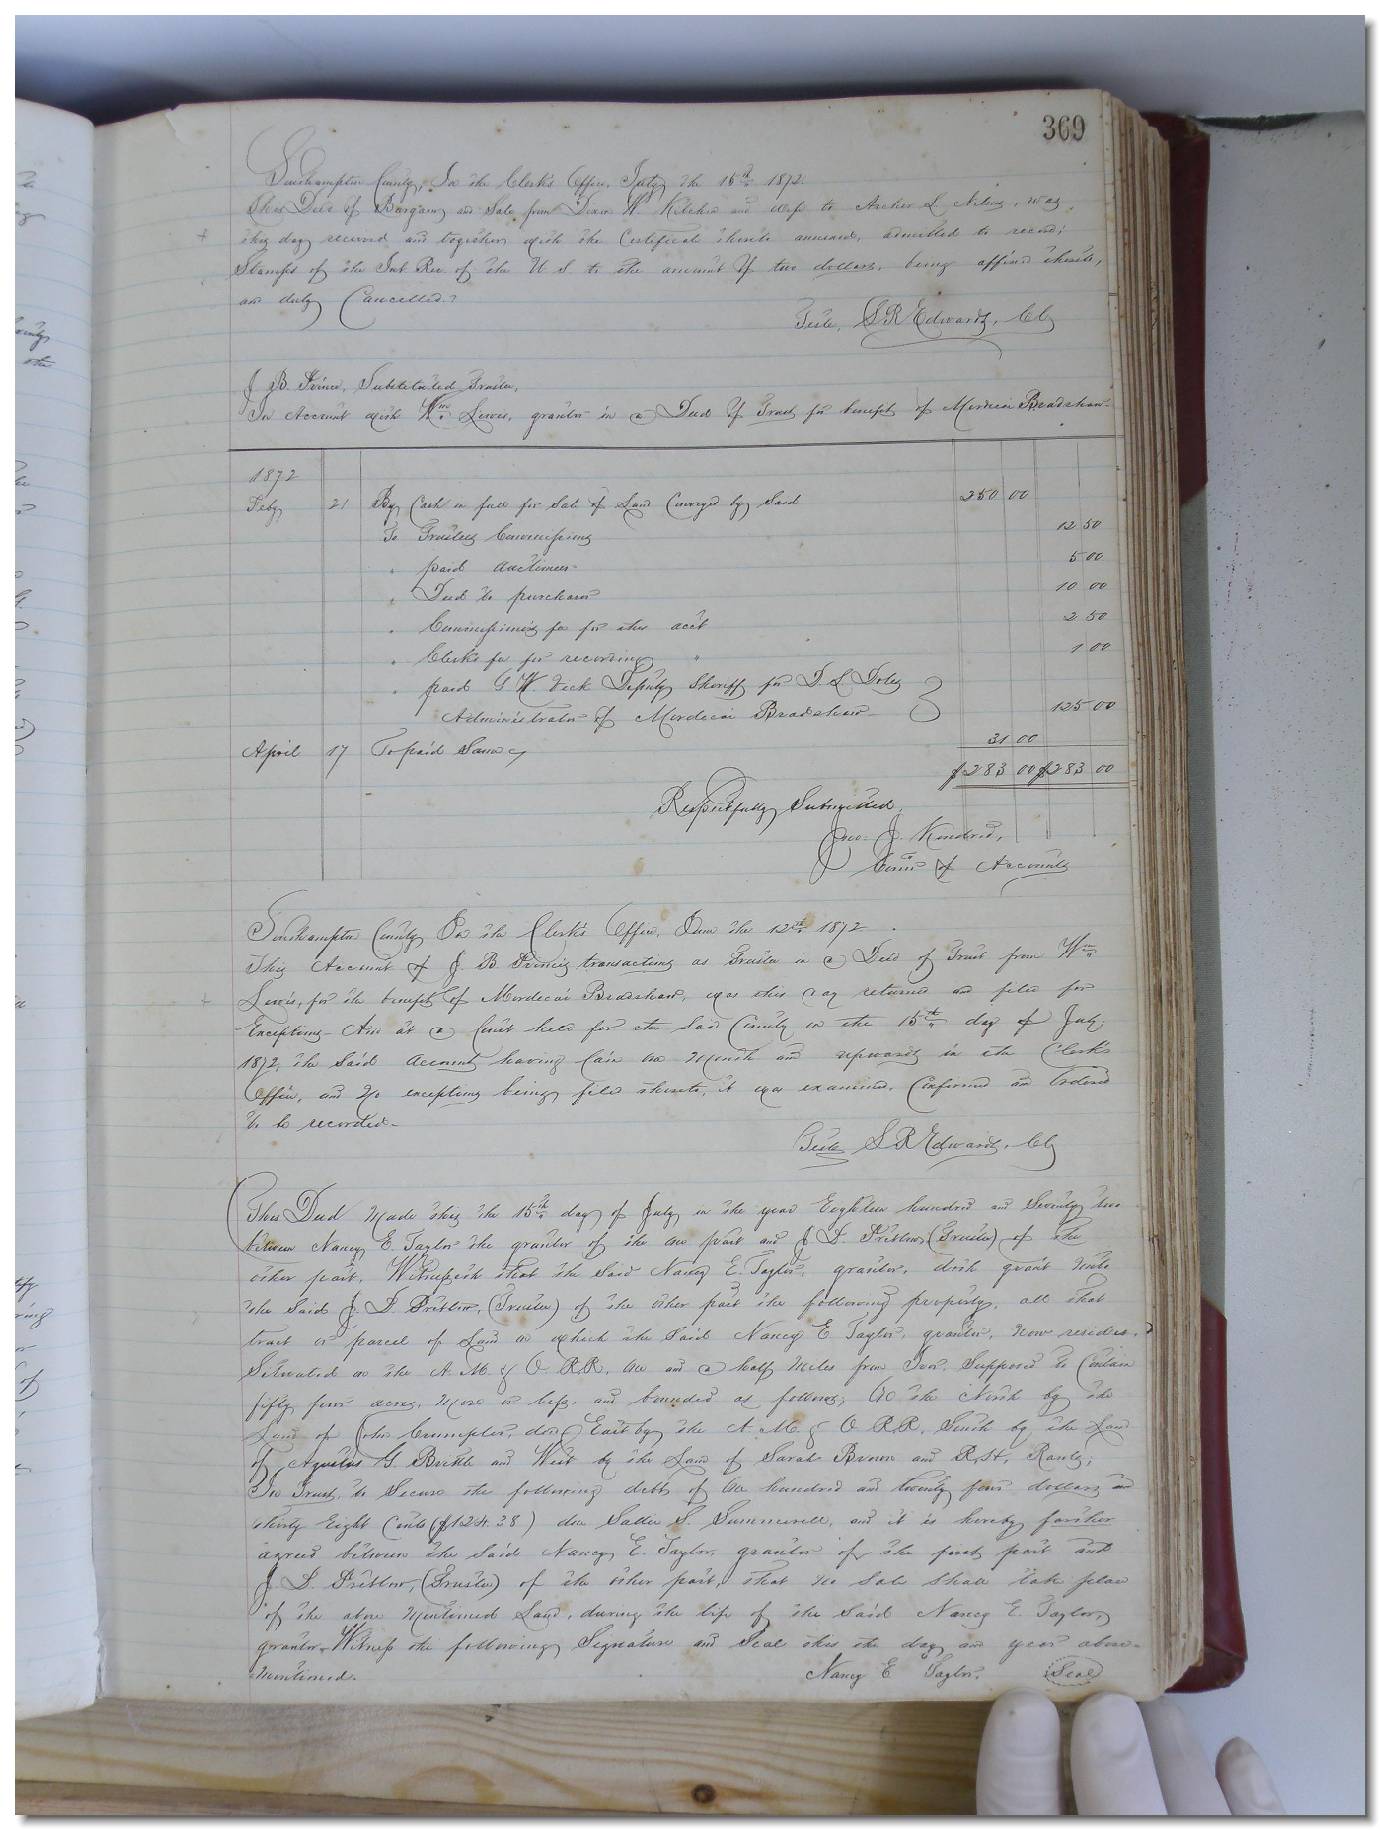 369
Southampton County, In the Clerk's Office, July the 15th 1872.
This Deed of Bargain and Sale from W. Kitchen and wife to Archer L. was
this day received and together with the Certificate thereto annexed, admitted to record;
Stamps of the Int Rev. of the U S to the amount of two dollars, being affixed thereto,
and duly Cancelled.
Teste, S R Edwards, Clk
J. B. Prince, Substituted Trustee,
In Account with Wm Lewis, grantor in a Deed of Trust for benefit of Mordecai Bradshaw
1872
Feby 21 By Cash in full for Sale of Land Conveyed by Said 250 00
To Trustees Commissions 12 50
" paid auctioneer 5 00
" Deed to purchaser 10 00
" Commissioners fee for this acct 2 50
" Clerks fee for recording " 1 00
" paid G W. Vick Deputy Sheriff for
Administrator of Mordecai Bradshaw 125 00
April 17 To paid Same 31 00
$283 00 $283 00
Respectfully Submitted,
Jno. J. Kindred,
Comr of Accounts
Southampton County In the Clerk's Office, June the 12th 1872
This Account of J. B. Prince's transactions as Trustee in a Deed of Trust from Wm
Lewis, for the benefit of Mordecai Bradshaw, was this day returned and filed for
Exceptions And at a Court held for the Said County on the 15th day of July
1872, the Said Account having lain one Month and upwards in the Clerk's
Office, and No exceptions being filed thereto, it was examined, Confirmed and Ordered
to be recorded.
Teste S R Edwards, Clk
This Deed Made this the 15th day of July in the year Eighteen hundred and Seventy two
between Nancy E. Taylor the grantor of the one part and J. D. Pretlow, (Trustee) of the
other part, Witnesseth that the Said Nancy E. Taylor, grantor, doth grant unto
the Said J. D. Pretlow, (Trustee) of the other part the following property, all that
tract or parcel of Land on which the Said Nancy E Taylor, grantor, now resides,
Situated on the A. M. & O. R.R. One and a half Miles from Ivor. Supposed to Contain
fifty four acres, More or less, and bounded as follows; On the North by the
Land of John Crumpler, decd, East by the A. M. & O. R.R, South by the Land
of Agustus G. Brittle and West by the Land of Sarah Brown and R. H.
In Trust, to Secure the following debt of One hundred and twenty four dollars and
thirty Eight Cents ($124.38) due Sallie S. Summerell, and it is hereby further
agreed between the Said Nancy E. Taylor, grantor of the first part and
J. D. Pretlow, (Trustee) of the other part, that no Sale Shall take place
of the above Mentioned Land, during the life of the Said Nancy E. Taylor,
grantor. Witness the following Signature and Seal this the day and year above
Mentioned. Nancy E Taylor. Seal